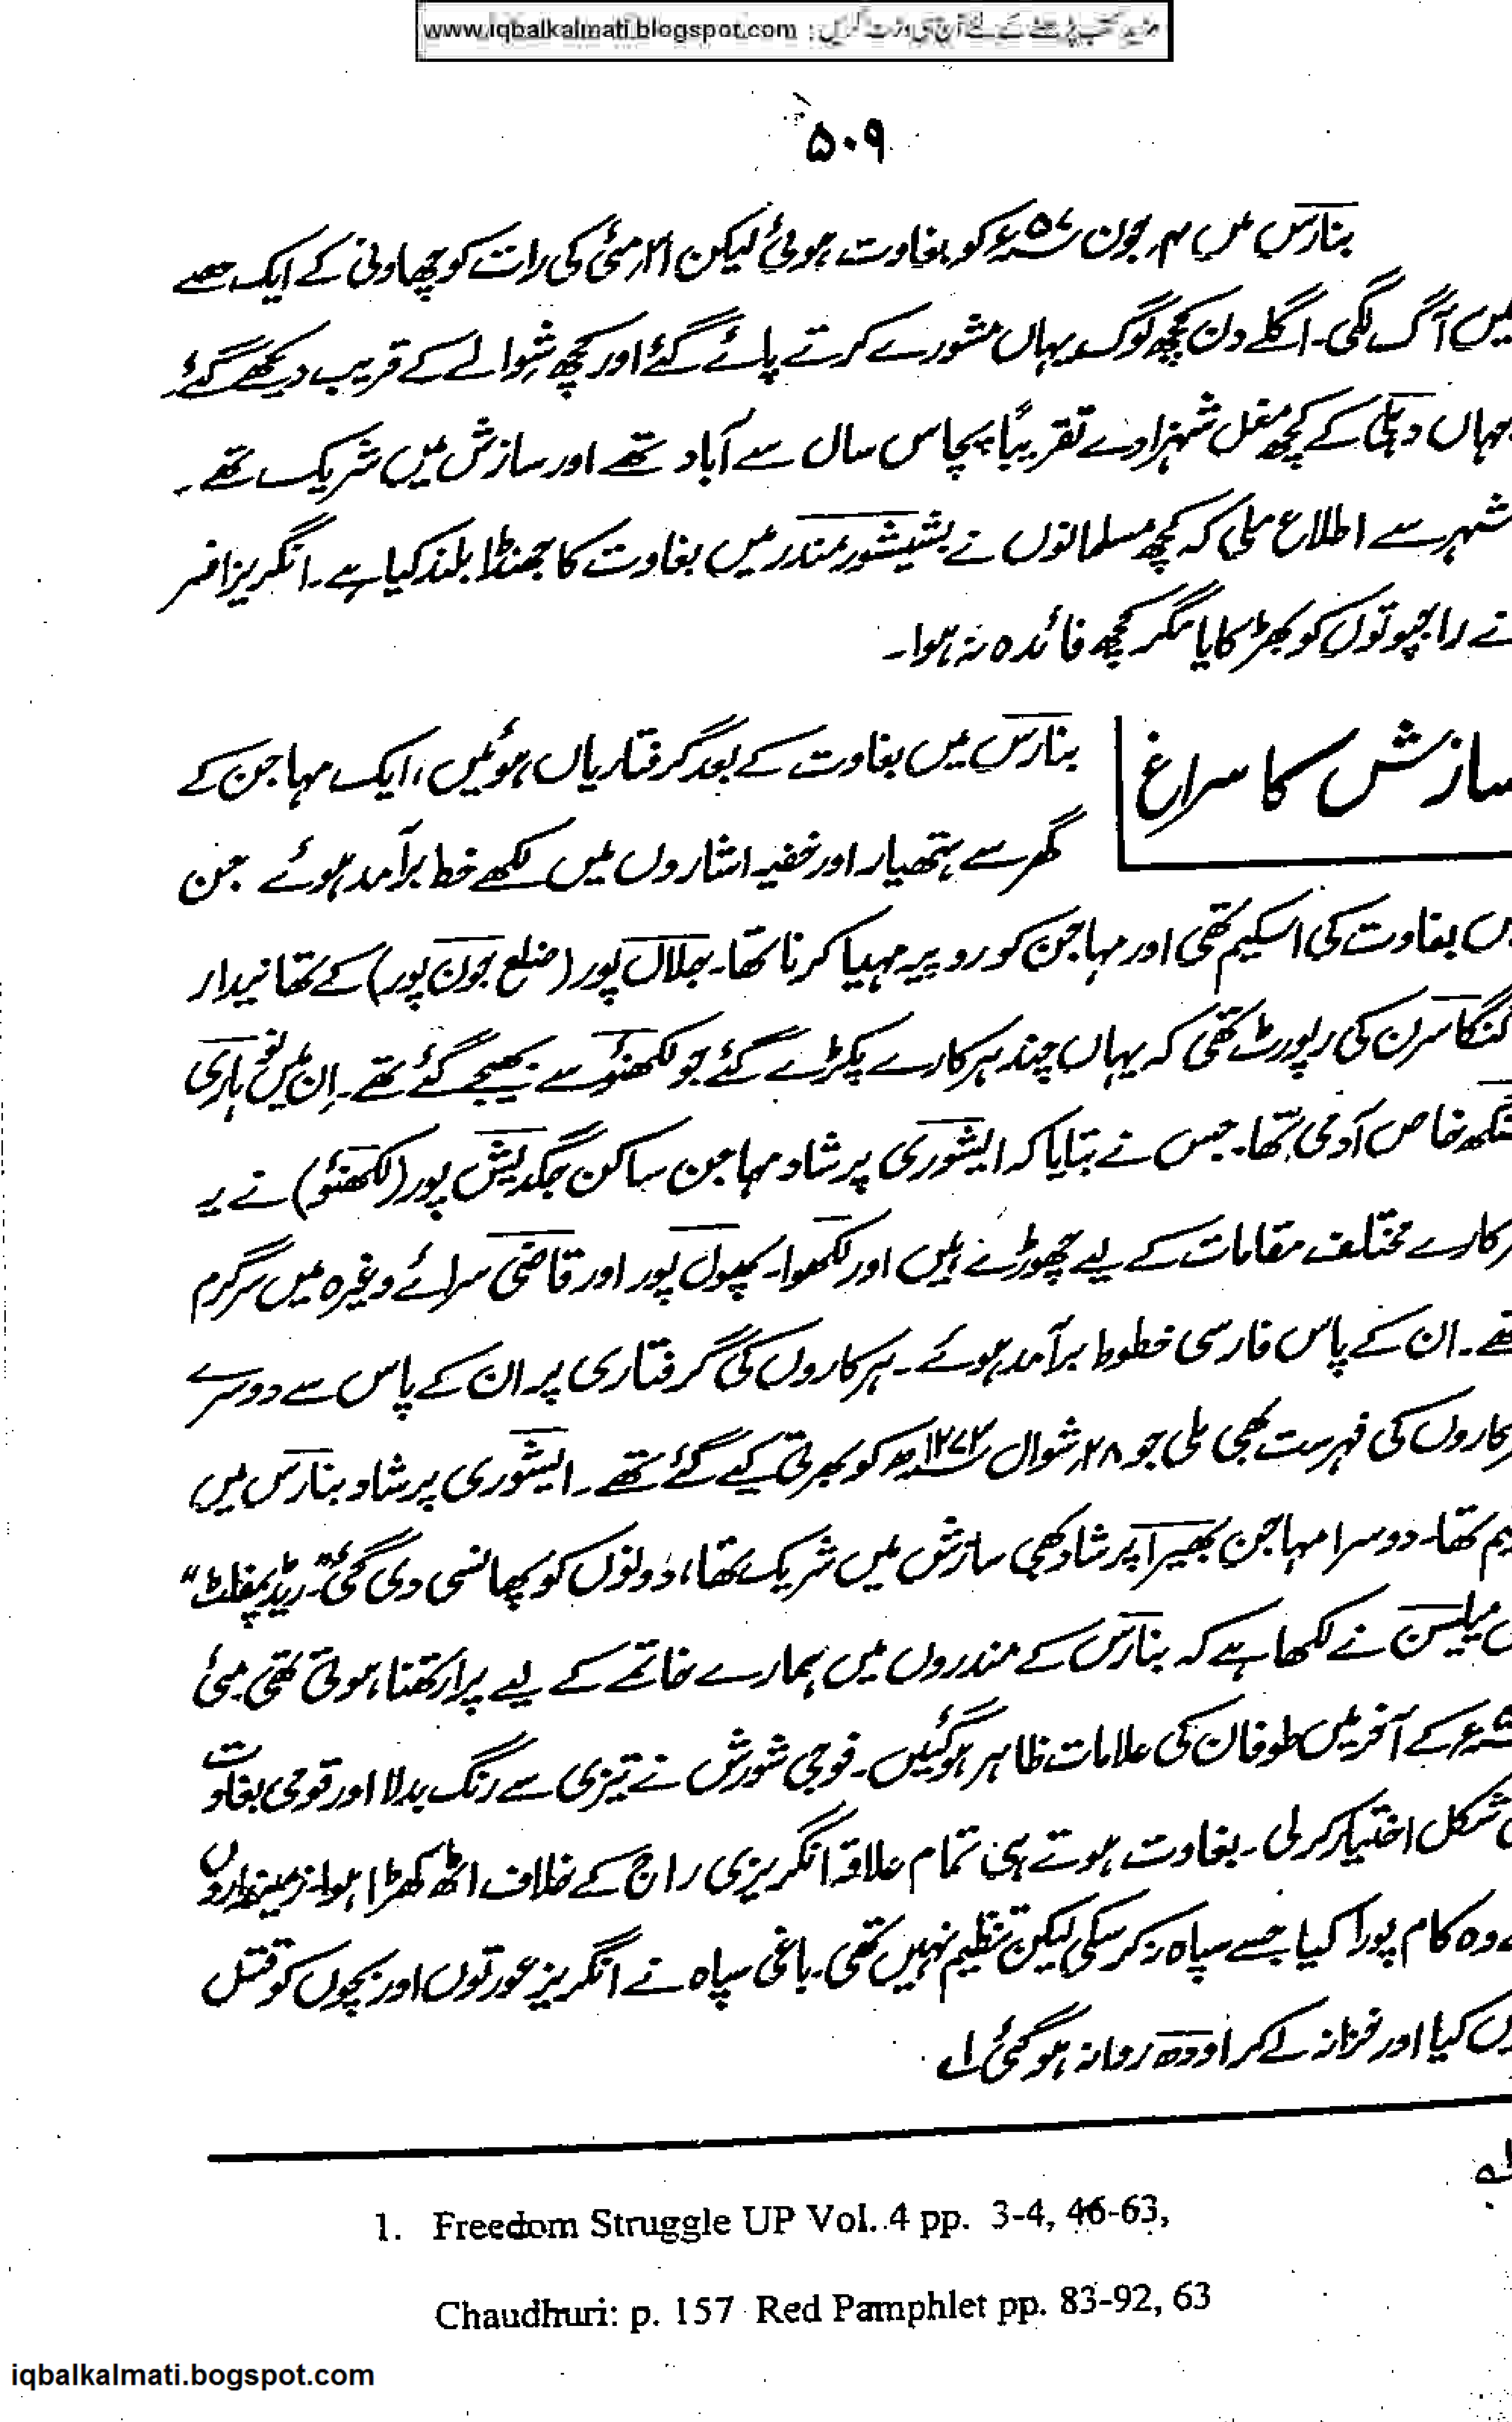 مزید کتب پڑھنے کے لئے آج ہی وزٹ کریں : www.iqbalkalmati.blogspot.com
۵۰۹
بنارس میں ۴ر جون ۵۷ء کو بغاوت ہوئی لیکن ۲۱ر مئی کی رات کو چھاونی کے ایک حصے
میں آگ لگی۔ اگلے دن کچھ لوگ یہاں مشورے کرتے پائے گئے اور کچھ شوالے کے قریب دیکھے گئے۔
یہاں دہلی کے کچھ مغل شہزادے تقریباً پچاس سال سے آباد تھے اور سازش میں شریک تھے۔
شہر سے اطلاع ملی کہ کچھ مسلمانوں نے بشیشور مندر میں بغاوت کا جھنڈا بلند کیا ہے۔ انگریز افسر
نے راجپوتوں کو بھڑکایا مگر کچھ فائدہ نہ ہوا۔
سازش کا سراغ
بنارس میں بغاوت کے بعد گرفتاریاں ہوئیں، ایک مہاجن کے
گھر سے ہتھیار اور خفیہ اشاروں میں لکھے خط برآمد ہوئے جن
میں بغاوت کی اسکیم تھی اور مہاجن کو روپیہ مہیا کرنا تھا۔ جلال پور (ضلع جون پور) کے تھانیدار
گنگا سرن کی رپورٹ تھی کہ یہاں چند ہرکارے پکڑے گئے جو لکھنؤ سے بھیجے گئے تھے۔ ان میں باری
سنگھ خاص آدمی تھا۔ جس نے بتایا کہ ایشوری پرشاد مہاجن ساکن جگدیش پور (لکھنؤ) نے یہ
ہرکارے مختلف مقامات کے لیے چھوڑے ہیں اور لکھوا۔ پھول پور اور قاضی سرائے وغیرہ میں سرگرم
تھے۔ ان کے پاس فارسی خطوط برآمد ہوئے۔ ہرکاروں کی گرفتاری پر ان کے پاس سے دوسرے
ہرکاروں کی فہرست بھی ملی جو ۲۸ر شوال ۱۲۷۳ھ کو بھرتی کیے گئے تھے۔ ایشوری پرشاد بنارس میں
تھا۔ دوسرا مہاجن بھیرا پرشاد بھی سازش میں شریک تھا، دونوں کو پھانسی دی گئی۔ "ریڈ پمفلٹ"
میں میلیسن نے لکھا ہے کہ بنارس کے مندروں میں ہمارے خاتمے کے لیے پرارتھنا ہوتی تھی۔ مئی
۵۷ء کے آخر میں طوفان کی علامات ظاہر ہو گئیں۔ فوجی شورش نے تیزی سے رنگ بدلا اور قومی بغاوت
کی شکل اختیار کر لی۔ بغاوت ہوتے ہی تمام علاقہ انگریزی راج کے خلاف اٹھ کھڑا ہوا۔ زمینداروں
نے وہ کام پورا کیا جسے سپاہ نہ کر سکی لیکن تنظیم نہیں تھی۔ باغی سپاہ نے انگریز عورتوں اور بچوں کو قتل
نہیں کیا اور خزانہ لے کر اودھ روانہ ہو گئی ؂۱
۱؂
1. Freedom Struggle UP Vol. 4 pp. 3-4, 46-63,
Chaudhuri: p. 157 Red Pamphlet pp. 83-92, 63
iqbalkalmati.bogspot.com